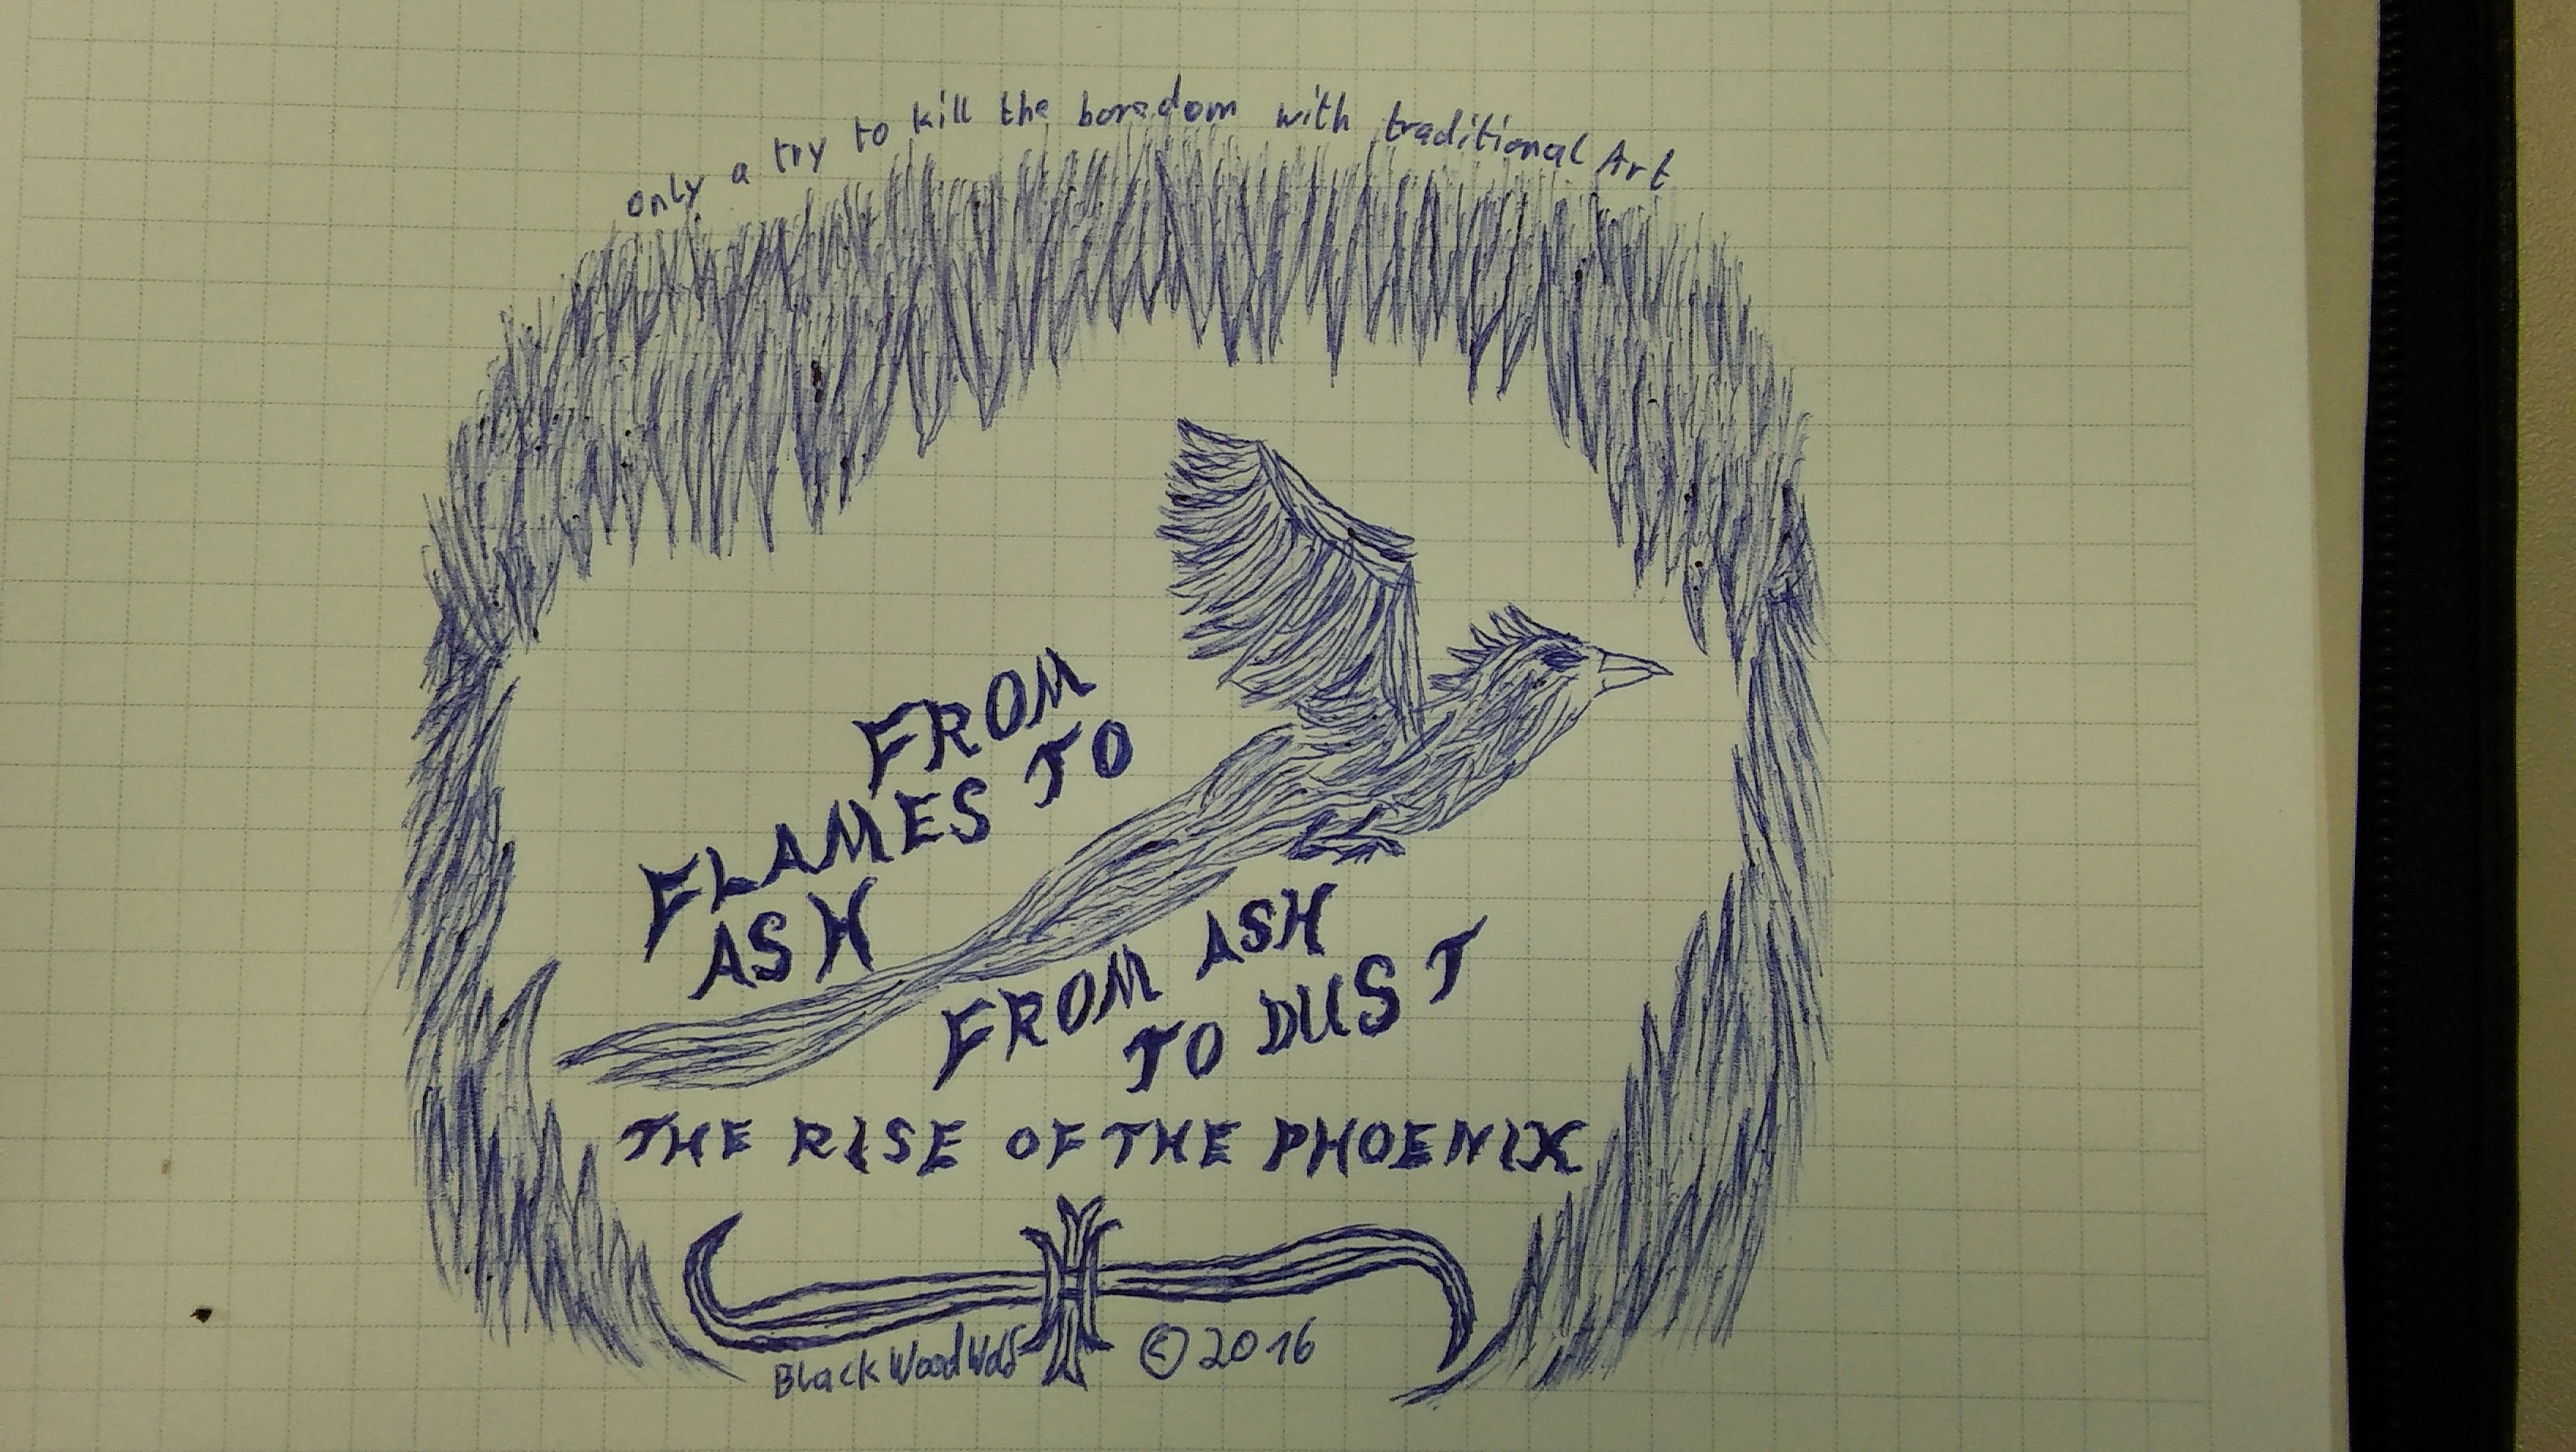 only a try to kill the boredom with traditional Art
FROM
FLAMES TO
ASH
FROM ASH
TO DUST
THE RISE OF THE PHOENIX
BlackWoodWolf © 2016